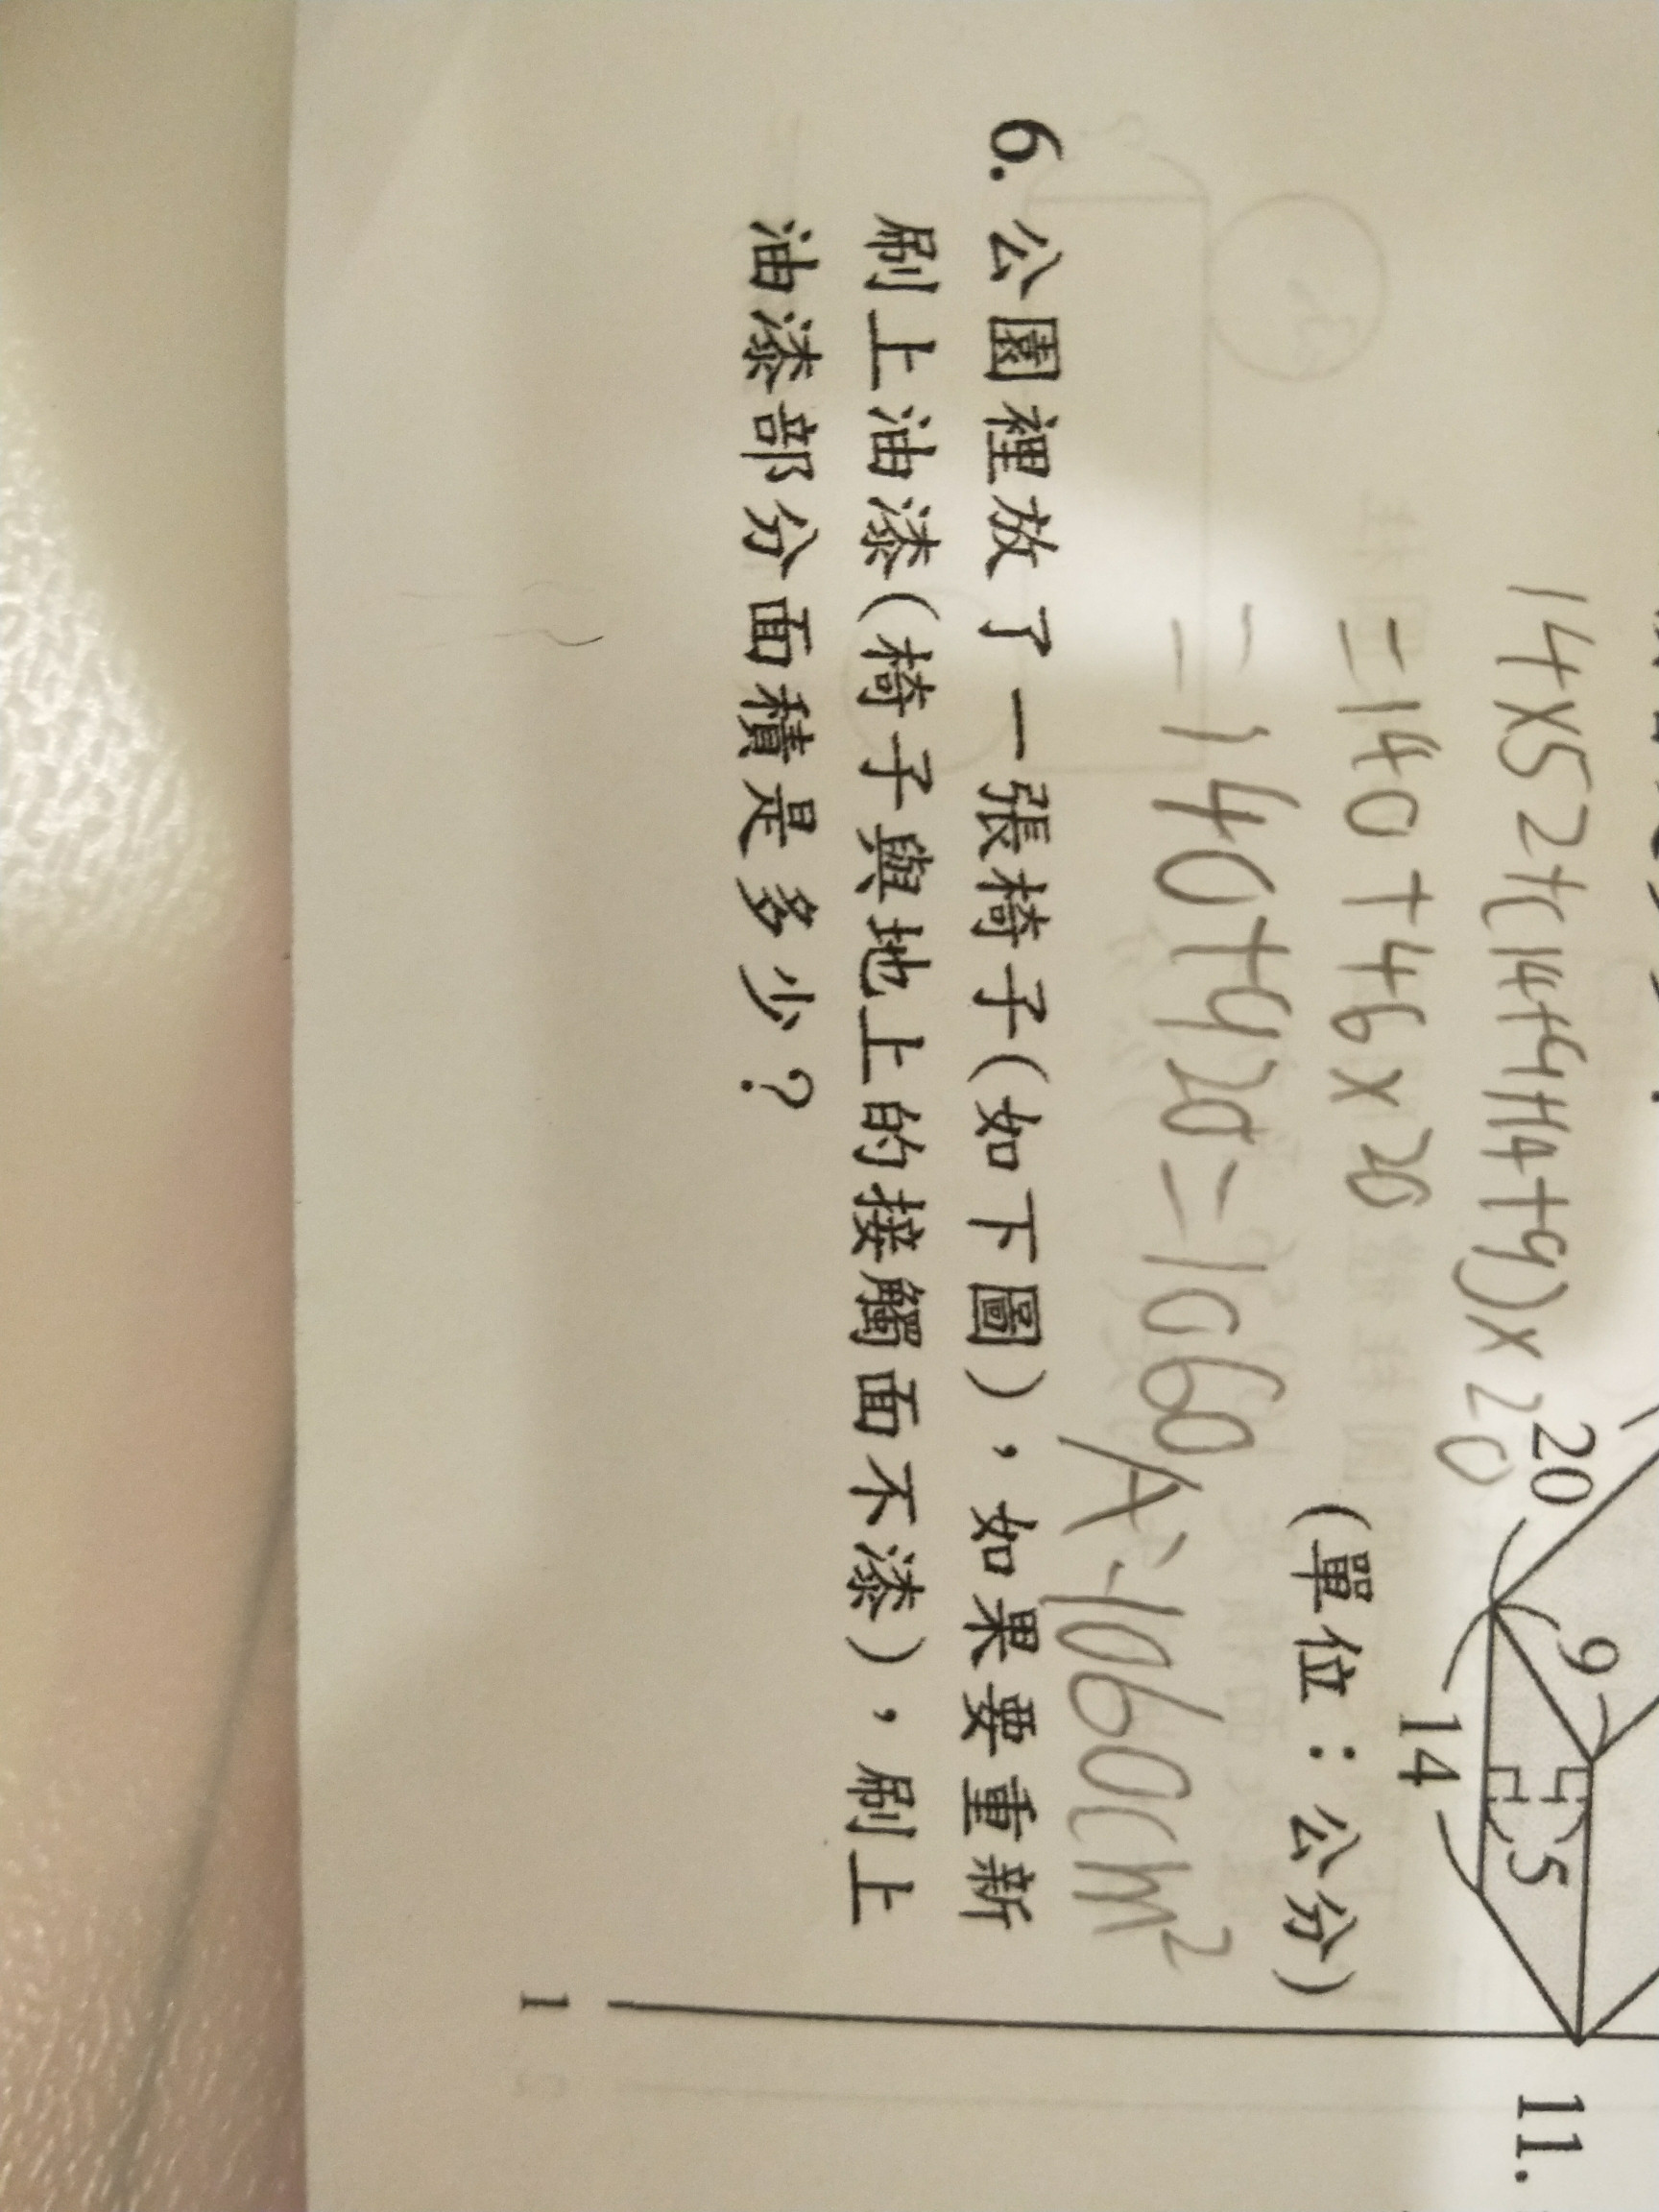 14×5×2+(14+9+14+9)×20
=140+46×20
=140+920=1060
A:1060cm²
20
9
5
14
(單位：公分)
6. 公園裡放了一張椅子(如下圖)，如果要重新
刷上油漆(椅子與地上的接觸面不漆)，刷上
油漆部分面積是多少？
1
11.